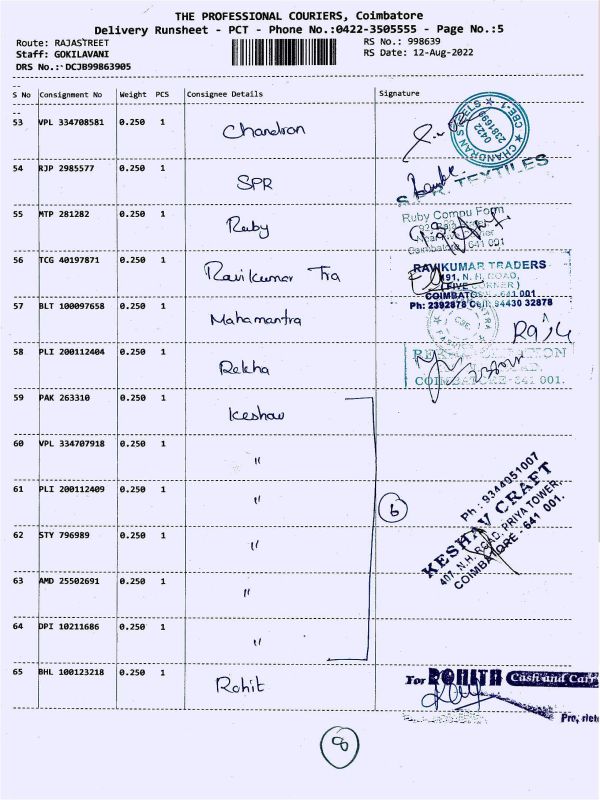 THE PROFESSIONAL COURIERS, Coimbatore
Delivery Runsheet - PCT - Phone No.:0422-3505555 - Page No.:5
Route: RAJASTREET RS No.: 998639
Staff: GOKILAVANI RS Date: 12-Aug-2022
DRS No.: DCJB99863905
S No Consignment No Weight PCS Consignee Details Signature
53 VPL 334708581 0.250 1 Chandron
CHANDRAN CBE-1 0422 2381699
54 RJP 2985577 0.250 1 SPR
TEXTILES
55 MTP 281282 0.250 1 Ruby
Ruby Compu Form
Coimbatore 641 001
56 TCG 40197871 0.250 1 Ravikumar Tra
RAVIKUMAR TRADERS
191, N. H. ROAD,
(FIVE CORNER)
COIMBATORE - 641 001
Ph: 2392878 Cell: 94430 32878
57 BLT 100097658 0.250 1 Mahamantra
58 PLI 200112404 0.250 1 Rekha
COIMBATORE-641 001.
59 PAK 263310 0.250 1 Keshav
60 VPL 334707918 0.250 1 "
61 PLI 200112409 0.250 1 "
6
Ph : 9344051007
KESHAV CRAFT
407, N.H. ROAD, PRIYA TOWER,
COIMBATORE - 641 001.
62 STY 796989 0.250 1 "
63 AMD 25502691 0.250 1 "
64 DPI 10211686 0.250 1 "
65 BHL 100123218 0.250 1 Rohit
For ROHITH Cash and Carr
8